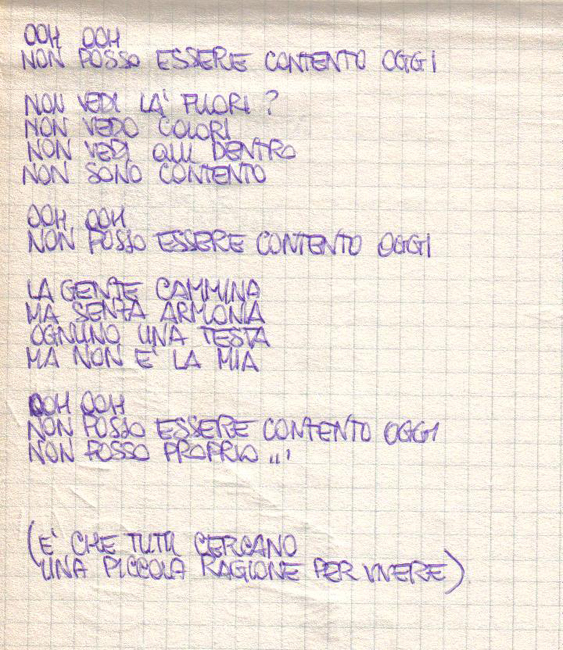 OOH OOH
NON POSSO ESSERE CONTENTO OGGI
NON VEDI LA' FUORI ?
NON VEDO COLORI
NON VEDI QUI DENTRO
NON SONO CONTENTO
OOH OOH
NON POSSO ESSERE CONTENTO OGGI
LA GENTE CAMMINA
MA SENZA ARMONIA
OGNUNO UNA TESTA
MA NON E' LA MIA
OOH OOH
NON POSSO ESSERE CONTENTO OGGI
NON POSSO PROPRIO ...
(E' CHE TUTTI CERCANO
UNA PICCOLA RAGIONE PER VIVERE)